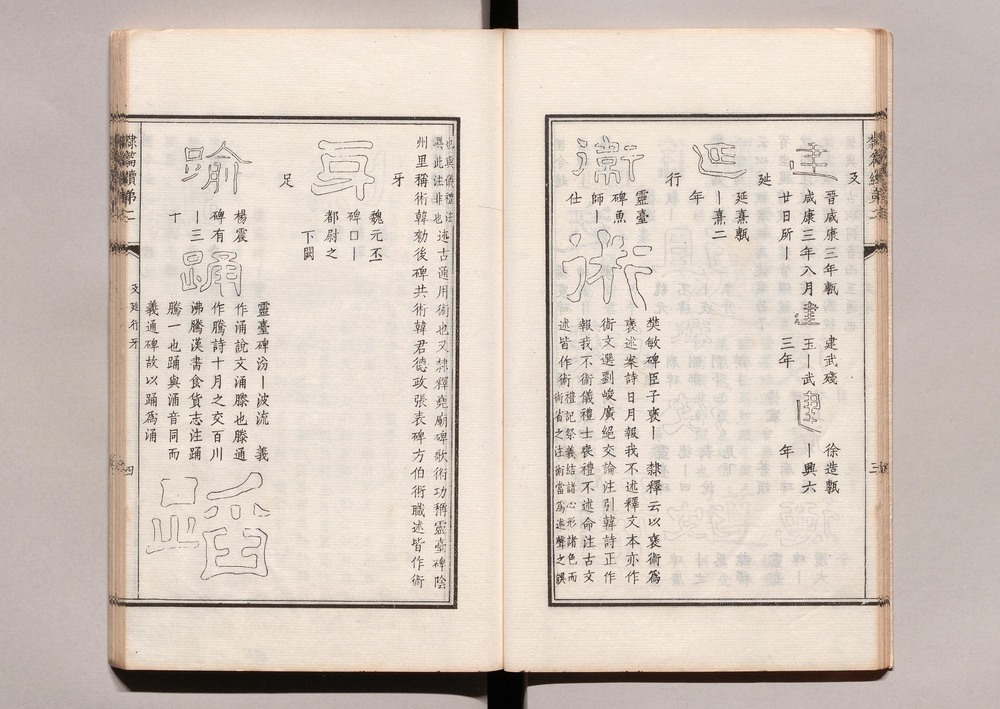 廴
建
晉咸康三年甎
咸康三年八月
廿日所丨
建
建武殘
玉丨武
三年
建
徐造甎
丨興六
年
㢟
延
延熹甎
丨熹二
年
行
衛
靈臺
碑魚
師丨
仕
術
樊敏碑臣子褒丨 隸釋云以褒術爲
褒述案詩日月報我不述釋文本亦作
術文選劉峻廣絕交論注引韓詩正作
報我不術儀禮士喪禮不述命注古文
述皆作術禮記祭義結諸心形諸色而
術省之注術當爲述聲之誤
也與儀禮注
此注非也
述古通用術也又隸釋堯廟碑歌術功稱靈臺碑陰
州里稱術韓勑後碑共術韓君德政張表碑方伯術職述皆作術
牙
牙
魏元丕
碑口丨
都尉之
下闕
足
踰
楊震
碑有
丨三
十
踊
靈臺碑汾丨波流 義
作涌說文涌滕也滕通
作騰詩十月之交百川
沸騰漢書食貨志注踊
騰一也踊與涌音同而
義通碑故以踊爲涌
蹈
隸篇續第二
廴㢟行牙
四
三